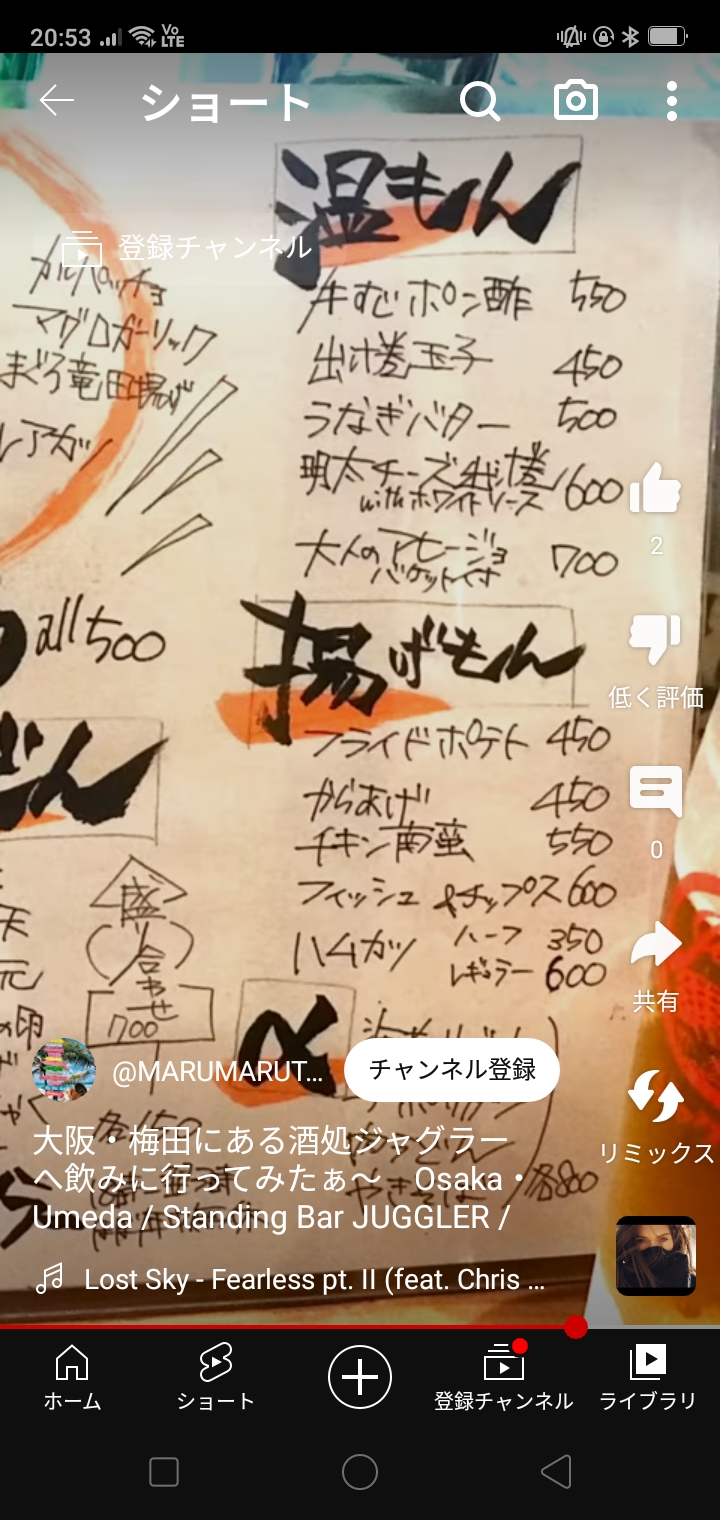 20:53
Vo LTE
ショート
登録チャンネル
温もん
カルパッチョ
牛すじポン酢 550
マグロガーリック
出汁巻玉子 450
まぐろ竜田揚げ
うなぎバター 500
レアカツ
明太チーズ出汁巻 600
withホワイトソース
大人のアヒージョ 700
バケット付き
2
all 500
揚げもん
低く評価
フライドポテト 450
からあげ 450
チキン南蛮 550
0
フィッシュ&チップス 600
ハムカツ ハーフ 350
レギュラー 600
盛り合わせ
700
共有
〆
@MARUMARUT...
チャンネル登録
大阪・梅田にある酒処ジャグラー
へ飲みに行ってみたぁ〜 Osaka・
Umeda / Standing Bar JUGGLER /
各150
やきそば
リミックス
Lost Sky - Fearless pt. II (feat. Chris ...
ホーム
ショート
登録チャンネル
ライブラリ